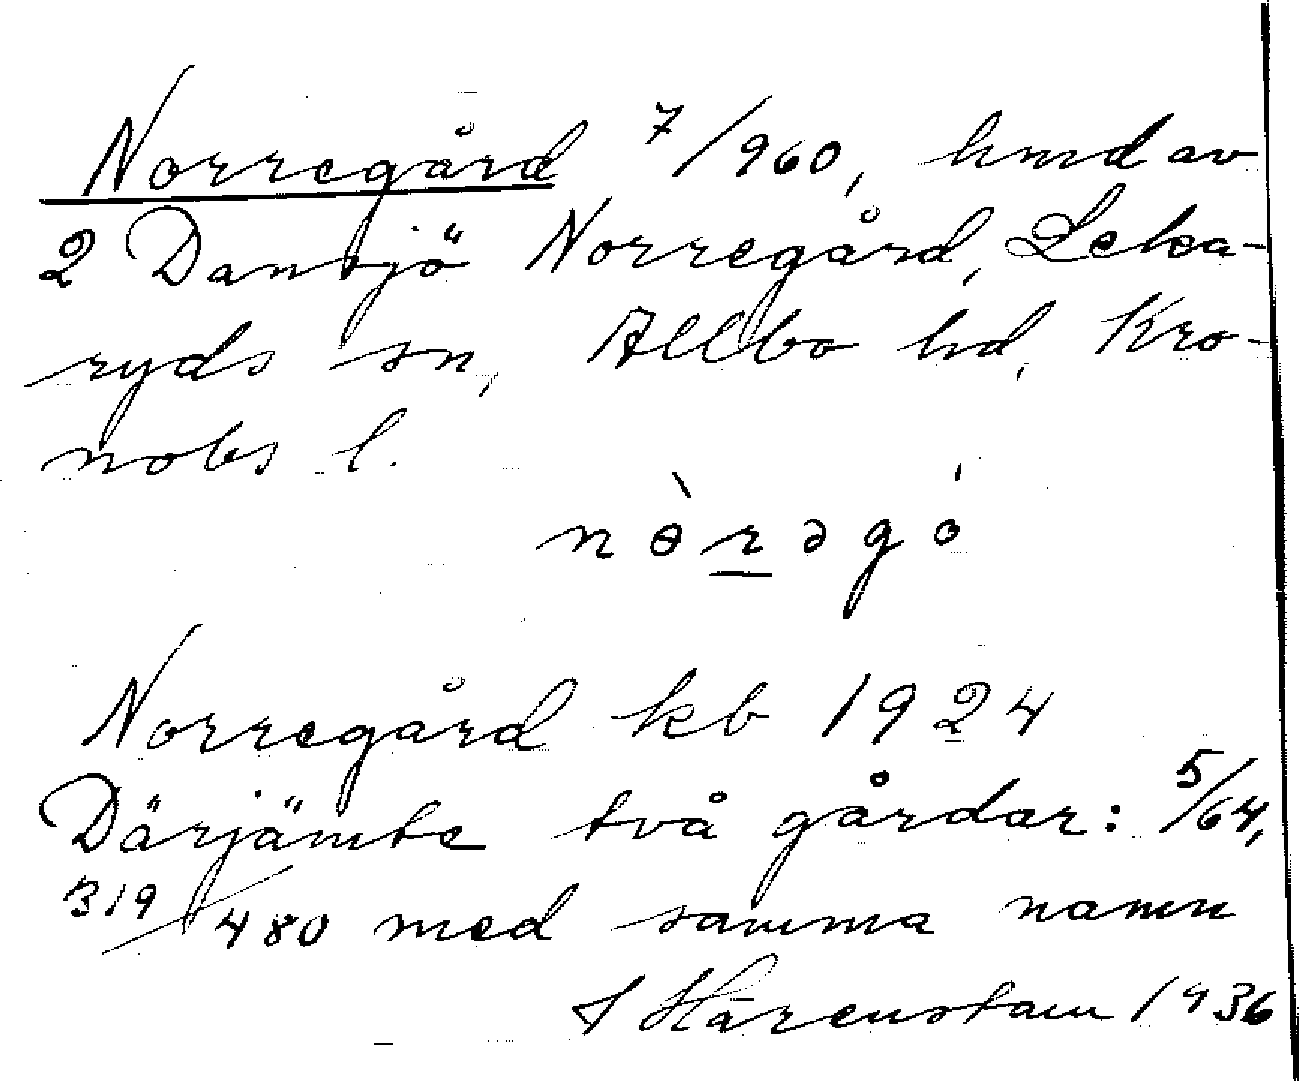 Norregård 7/960, hmd av
2 Dansjö Norregård, Leka-
ryds sn, Allbo hd, Kro-
nobs l.
nɵ̀rəgó
Norregård kb 1924
Därjämte två gårdar: 5/64,
319/480 med samma namn
Härenstam 1936